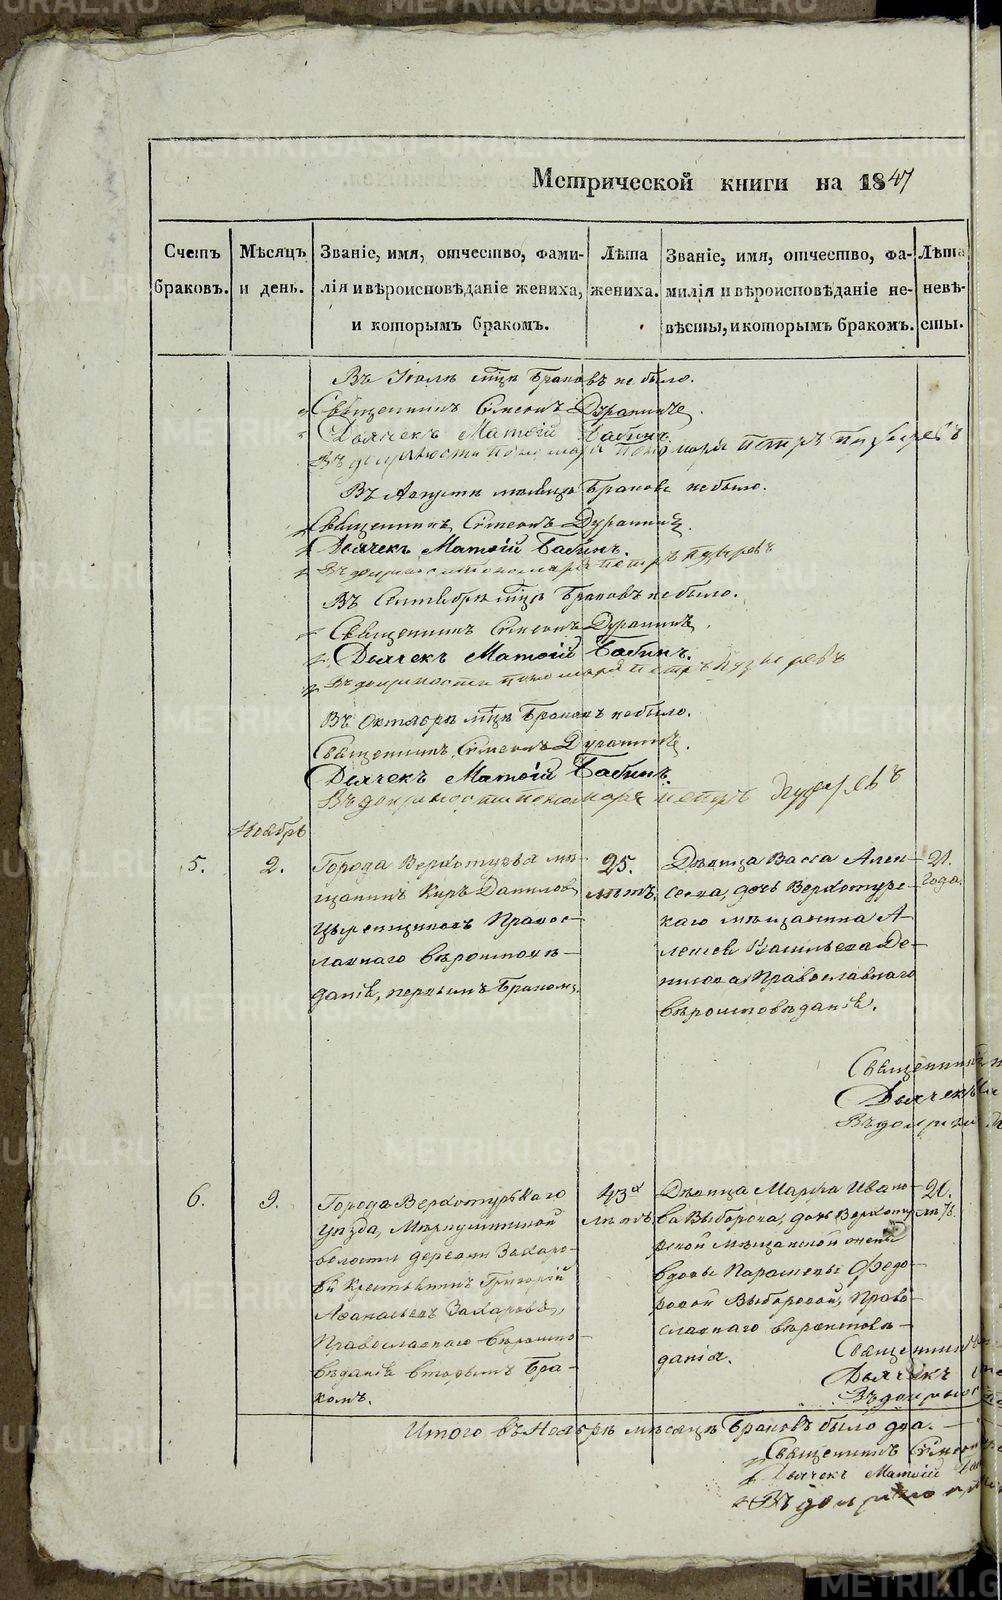 Метрической книги на 1847
Счетъ браковъ.
Мѣсяцъ и день.
Званіе, имя, отчество, фами-
лія и вѣроисповѣданіе жениха,
и которымъ бракомъ.
Лѣта жениха.
Званіе, имя, отчество, фа-
милія и вѣроисповѣданіе не-
вѣсты, и которымъ бракомъ.
Лѣта невѣ-
сты.
Въ Іюлѣ мцѣ браковъ не было.
Священникъ Симеонъ
Дьячекъ Матѳій Бабинъ.
Въ должности пономаря Петръ Пузыревъ
Въ Августѣ мѣсяцѣ браковъ не было.
Священникъ Симеонъ
Дьячекъ Матѳій Бабинъ.
Въ должности пономаря Петръ Пузыревъ
Въ Сентябрѣ мцѣ браковъ не было.
Священникъ Симеонъ
Дьячекъ Матѳій Бабинъ.
Въ должности пономаря Петръ Пузыревъ
Въ Октябрѣ мцѣ браковъ не было.
Священникъ Симеонъ
Дьячекъ Матѳій Бабинъ.
Въ должности пономаря Петръ Пузыревъ
Ноябрь
5.
2.
Города Верхотурья мѣ-
щанинъ Киръ Даниловъ
Правос-
лавнаго вѣроисповѣ-
данія, первымъ бракомъ.
25.
лѣтъ.
Дѣвица Васса Алек-
сеева, дочь Верхотурс-
каго мѣщанина А-
лексея Васильева Де-
православнаго
вѣроисповѣданія.
21.
года.
Священникъ
Дьячекъ
Въ должн
6.
9.
Города Верхотурьскаго
уѣзда, Меркушинской
волости деревни Захаро-
вй крестьянинъ Григорій
Афанасьевъ Захаровъ,
Православнаго вѣроиспо-
вѣданія вторымъ бра-
комъ.
43
лѣтъ.
Дѣвица Марфа Ивано-
ва Выборова, дочь Верхоту
рской мѣщанской жены
вдовы Парасковьи Федо-
ровой Выборовой, Право-
славнаго вѣроисповѣ-
данія.
20.
лѣтъ.
Священникъ
Дьячекъ
Въ должнос
Итого въ Ноябрѣ мѣсяцѣ браковъ было два.
Священникъ Симеон
Дьячекъ Матѳій Баб
Въ должно
METRIKI.GASO-URAL.RU